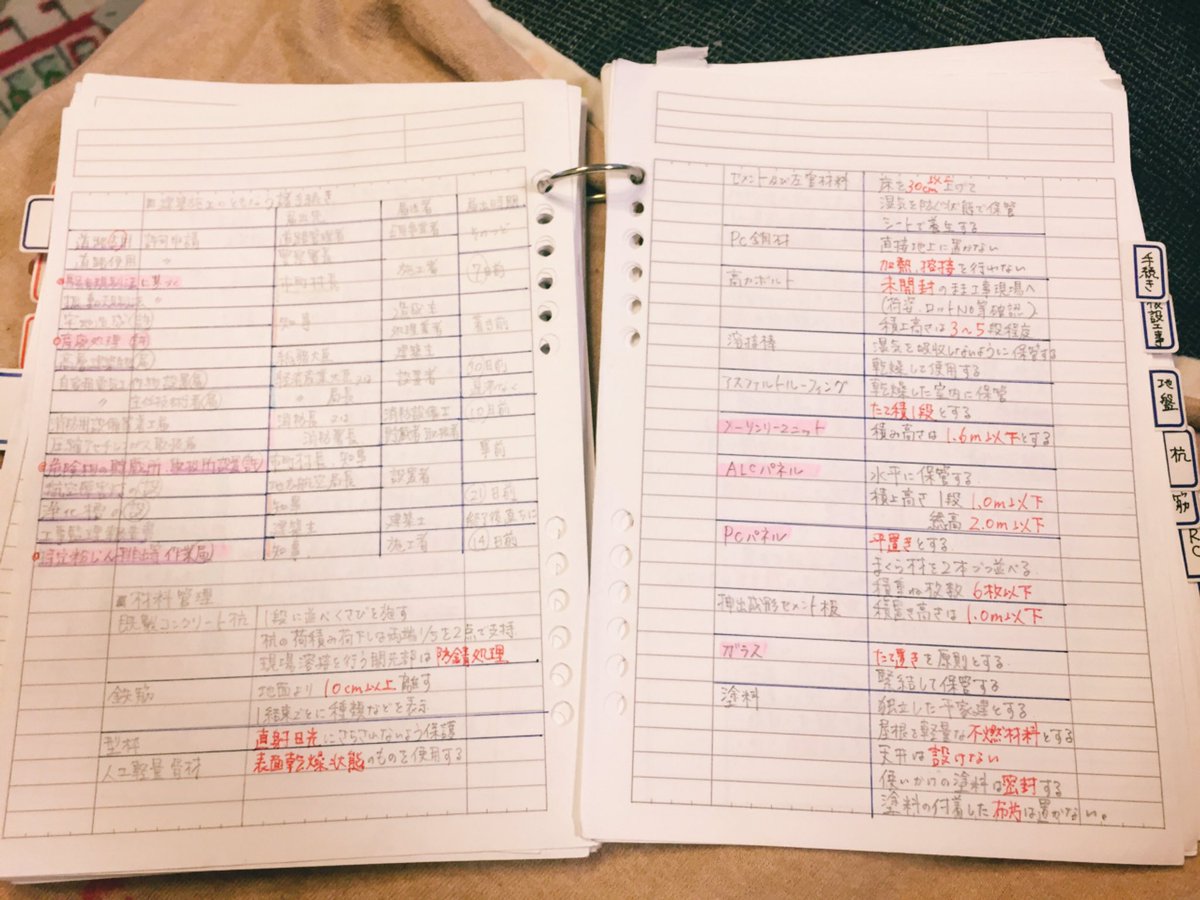 ■建築施工にともなう諸手続き
届出先 届出者 届出時期
道路占用 許可申請 道路管理者 そのつど
道路使用 〃 警察署長
市町村長 施工者 7日前
知事 造成主
産廃処理 着手前
総務大臣 建築主 30日前
経済産業大臣又は 設置者 遅滞なく
〃 局長
消防長又は 消防設備士 10日前
消防署長
危険物の貯蔵所 取扱所設置 市町村長、知事 事前
地方航空局長 設置者
浄化槽の 知事 21日前
建築主 建築士 終了後直ちに
特定粉じん排出等作業届 知事 施工者 14日前
■材料管理
既製コンクリート杭 1段に並べくさびを施す
杭の荷積み荷下しは両端1/5を2点で支持
現場溶接を行う開先部は防錆処理
鉄筋 地面より10cm以上離す
1結束ごとに種類などを表示
型枠 直射日光にさらさないよう保護
人工軽量骨材 表面乾燥状態のものを使用する
セメント及び左官材料 床を30cm以上上げて
湿気を防ぐ状態で保管
シートで養生する
PC鋼材 直接地上に置かない
加熱、溶接を行わない
高力ボルト 未開封のまま工事現場へ
(荷姿、ロットNo等確認)
積上高さは3〜5段程度
溶接棒 湿気を吸収しないように保管する
乾燥して使用する
アスファルトルーフィング 乾燥した室内に保管
たて積1段とする
フーリングユニット 積み高さは1.6m以下とする
ALCパネル 水平に保管する
積上高さ1段 1.0m以下
総高 2.0m以下
PCパネル 平置きとする
まくら材を2本づつ並べる
積重ね枚数 6枚以下
押出成形セメント板 積置き高さは1.0m以下
ガラス たて置きを原則とする
緊結して保管する
塗料 独立した平家建とする
屋根を軽量な不燃材料とする
天井は設けない
使いかけの塗料は密封する
塗料の付着した布片は置かない。
手続き
仮設工事
地盤
杭
筋
RC